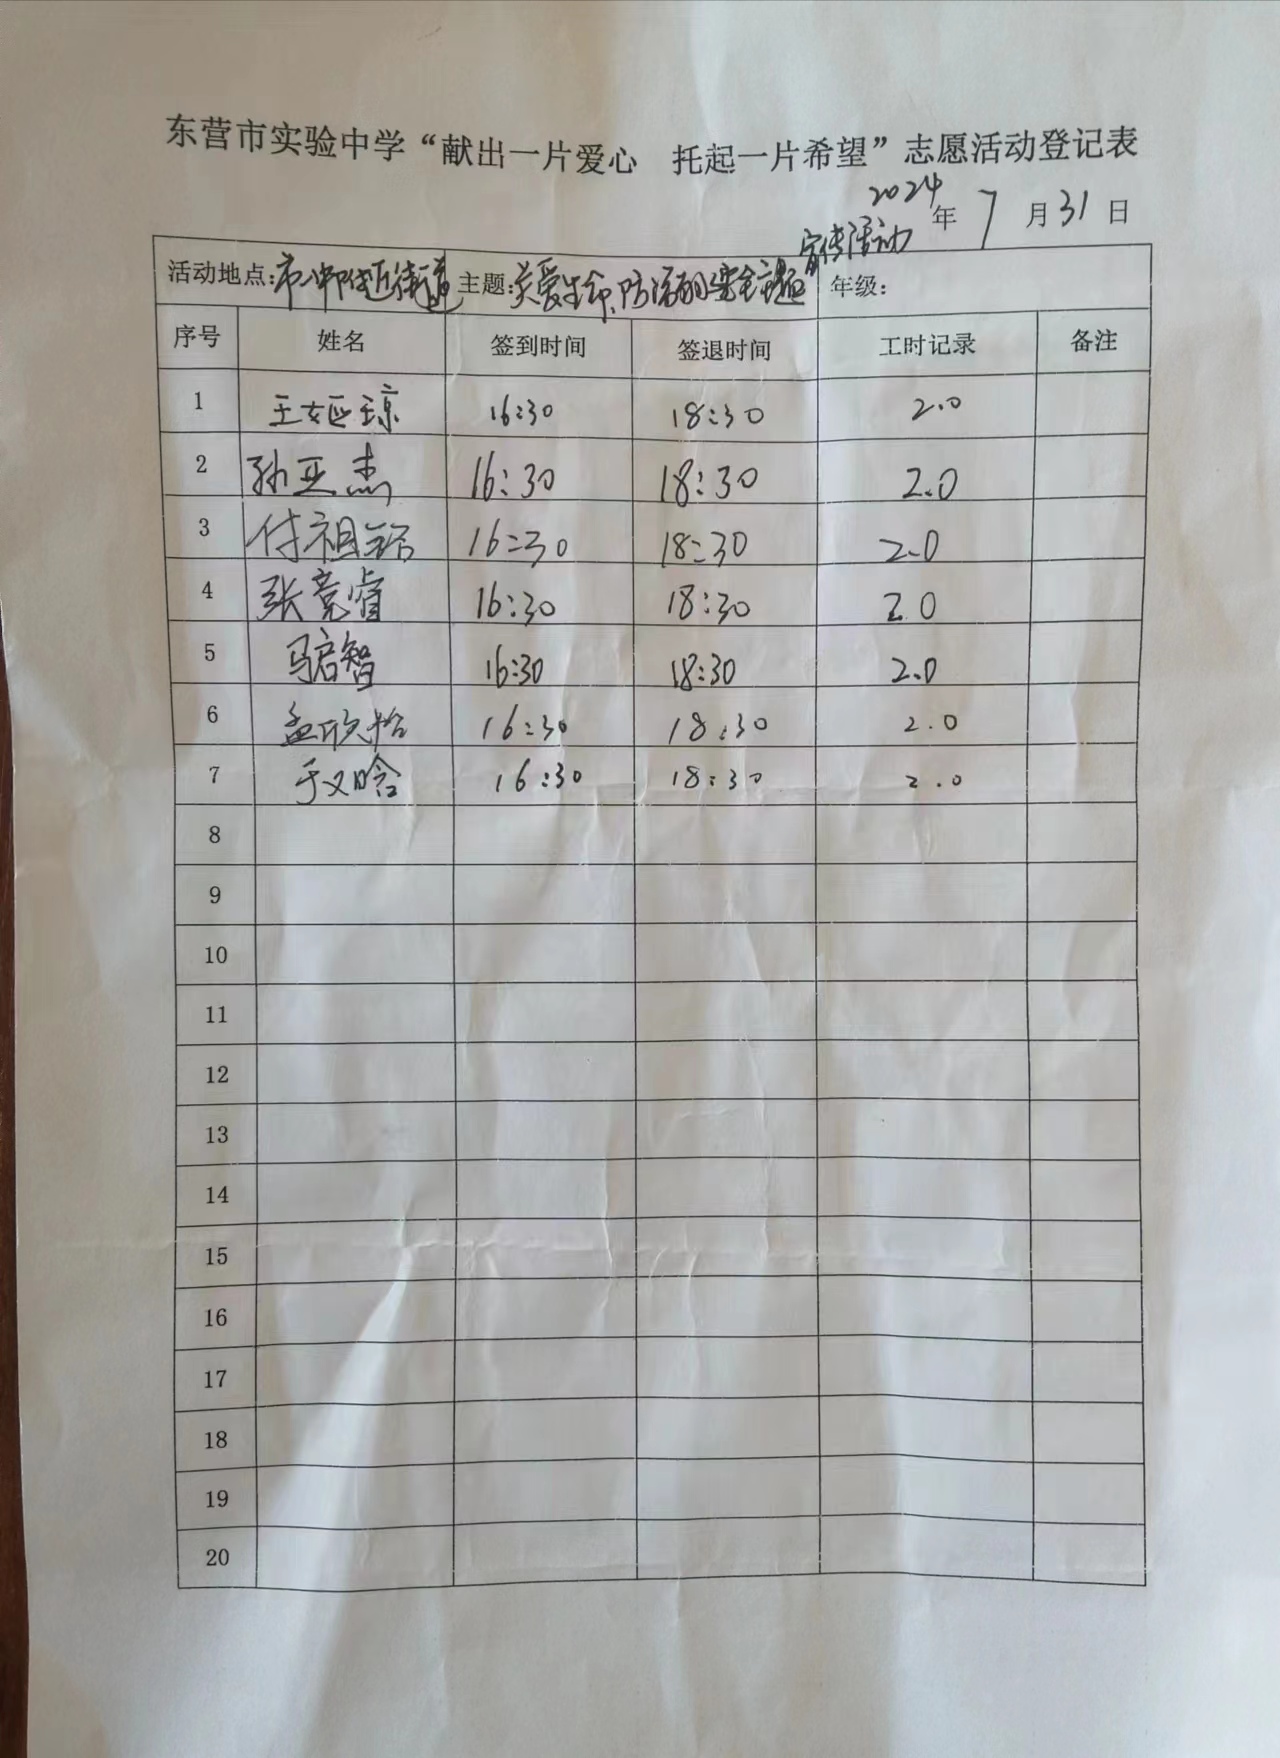 东营市实验中学“献出一片爱心 托起一片希望”志愿活动登记表
2024年7月31日
宣传活动
活动地点:市 附近街道 主题:关爱生命、防溺 安全主题 年级:
序号 姓名 签到时间 签退时间 工时记录 备注
1 王姬琼 16:30 18:30 2.0
2 孙亚杰 16:30 18:30 2.0
3 付祖 16:30 18:30 2.0
4 张竞睿 16:30 18:30 2.0
5 马启智 16:30 18:30 2.0
6 孟欣怡 16:30 18:30 2.0
7 于义晗 16:30 18:30 2.0
8
9
10
11
12
13
14
15
16
17
18
19
20